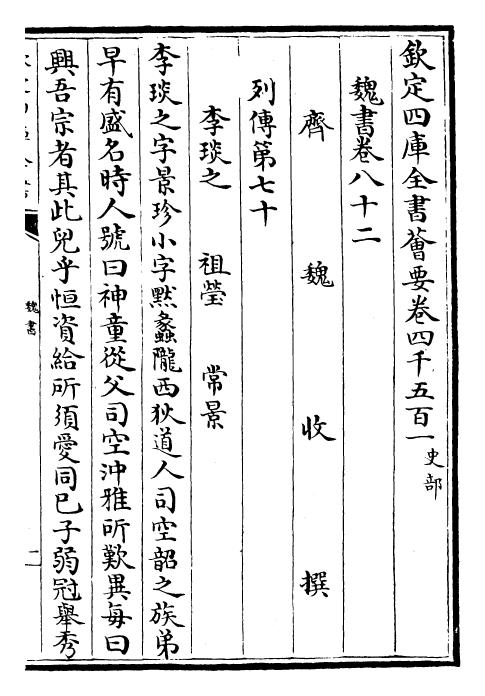 欽定四庫全書薈要卷四千五百一史部
魏書卷八十二
齊魏收撰
列傳第七十
李琰之 祖瑩 常景
李琰之字景珍小字黙蠡隴西狄道人司空韶之族弟
早有盛名時人號曰神童從父司空沖雅所歎異每曰
興吾宗者其此兒乎恒資給所須愛同已子弱冠舉秀
魏書